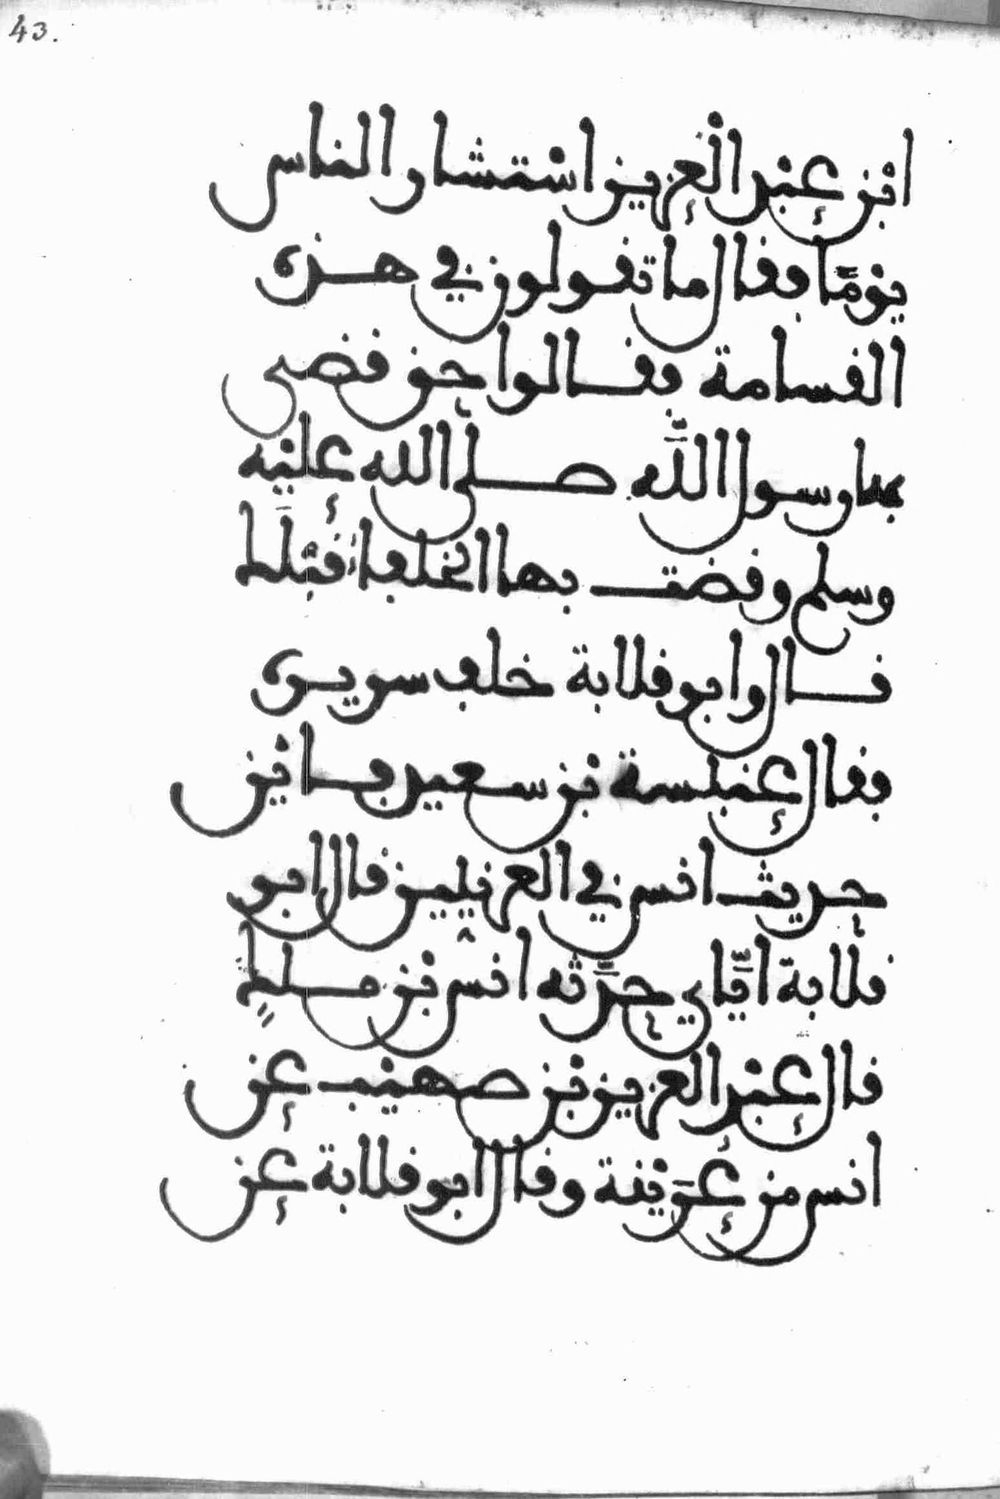 43.
ابن عبد العزيز استشار الناس
يوما فقال ما تقولون في هذه
القسامة فقالوا حق قضى
بها رسول الله صلى الله عليه
وسلم وقضت بها الخلفا قبلك
قال وابو قلابة خلف سريره
فقال عنبسة بن سعيد فاين
حديث انس في العرنيين قال ابو
قلابة اياي حدثه انس بن ملك
قال عبد العزيز بن صهيب عن
انس من عرينة وقال ابو قلابة عن